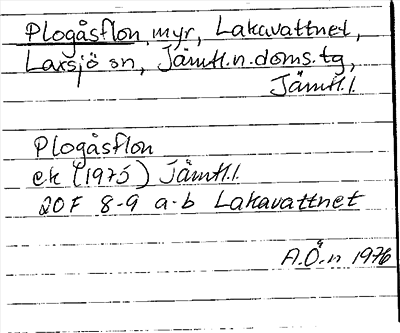 Plogåsflon, myr, Lakavattnet,
Laxsjö sn, Jämtl.n.doms.tg,
Jämtl.l.
Plogåsflon
ek (1975) Jämtl.l.
20F 8-9 a-b Lakavattnet
A.Ö-n 1976